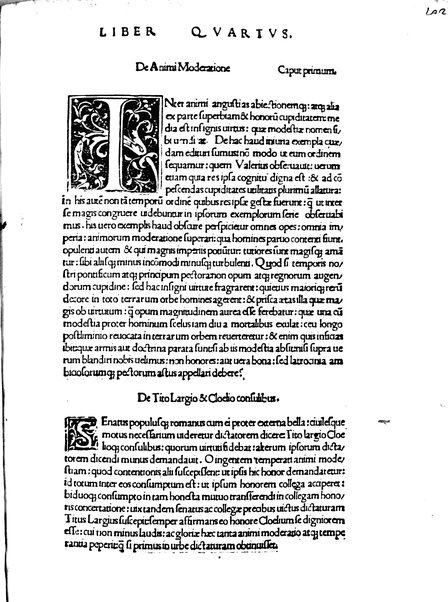 LIBER QVARTVS.
De Animi Moderatione Caput primum.
INter animi angustias abiectionemq; atq; alia
ex parte superbiam & honorū cupiditatem: me
dia est insignis uirtus: quæ modestiæ nomen si,
bi De hac haud iniuria exempla quæ,
dam edituri sumus: nō modo ut eum ordinem
sequamur: quem Valerius obseruauit: uerum
etiam quia res ipsa cognitu digna est: & ad cō
pescendas cupiditates utilitatis plurimū allatura:
In his autē non tā temporū ordinē quibus res ipsę gestæ fuerunt: q̄ ut inter
se magis congruere uidebuntur in ipsorum exemplorum serie obseruabi
mus. his uero exemplis haud obscure perspicietur omnes opes: omnia im
peria: animorum moderatione superari: qua homines paruo contenti fiunt.
opulenti autem & qui magnis imperiis potiūtur: tutiores sunt magisq; amā
tur: sibi aliisq; minus incōmodi minusq; turbulenti. Quod si temporis no,
stri pontificum atq; principum pectora non opum atq; regnorum augen/
dorum cupidine: sed hac insigni uirtute fragrarent: quietius maioriq; rerū
decore in toto terrarum orbe homines agerent: & prisca ætas illa quæ ma,
gis ob uirtutum: q̄ opum magnitudinem aurea esse ferebatur: quæ una cū
modestia propter hominum scelus iam diu a mortalibus exulat: ceu longo
postliminio reuocata in terrarum orbem reuerteretur: & enim quis inficias
ibit: quæ armis aut doctrina parata sunt: si ab iis modestia absit: nisi supra ue
rum blandiri nobis uelimus: non honores: aut uera bona: sed latrocinia am
biosorumq; pectorum astus appellari debere?
De Tito Largio & Clodio consulibus.
SEnatus populusq; romanus cum ei propter externa bella: ciuilesque
motus necessarium uideretur dictatorem dicere: Tito largio Cloe
lioq; consulibus: quorum uiritim fi debat: alterum ipsorum dicta/
torem dicendi munus demandauit. O ingentem temperati animi mode/
stiam: quod contentionis alii suscepissent: ut ipsis hic honor demandaretur:
id totum inter eos consumptum est: ut ipsum honorem collega acciperet:
biduoq; consumpto in tam honesta mutuo transferendi in collegam hono/
ris concertatione: uix tandem senatus ac collegæ præcibus uictus dictaturam
Titus Largius suscepit: semper affirmans eo honore Clœlium se digniorem
esse: cui non minus laudis: ac gloriæ hæc tanta animi moderatio atq; tempe
rantia peperit: q̄ si primus in urbe dictaturam obtinuisset.